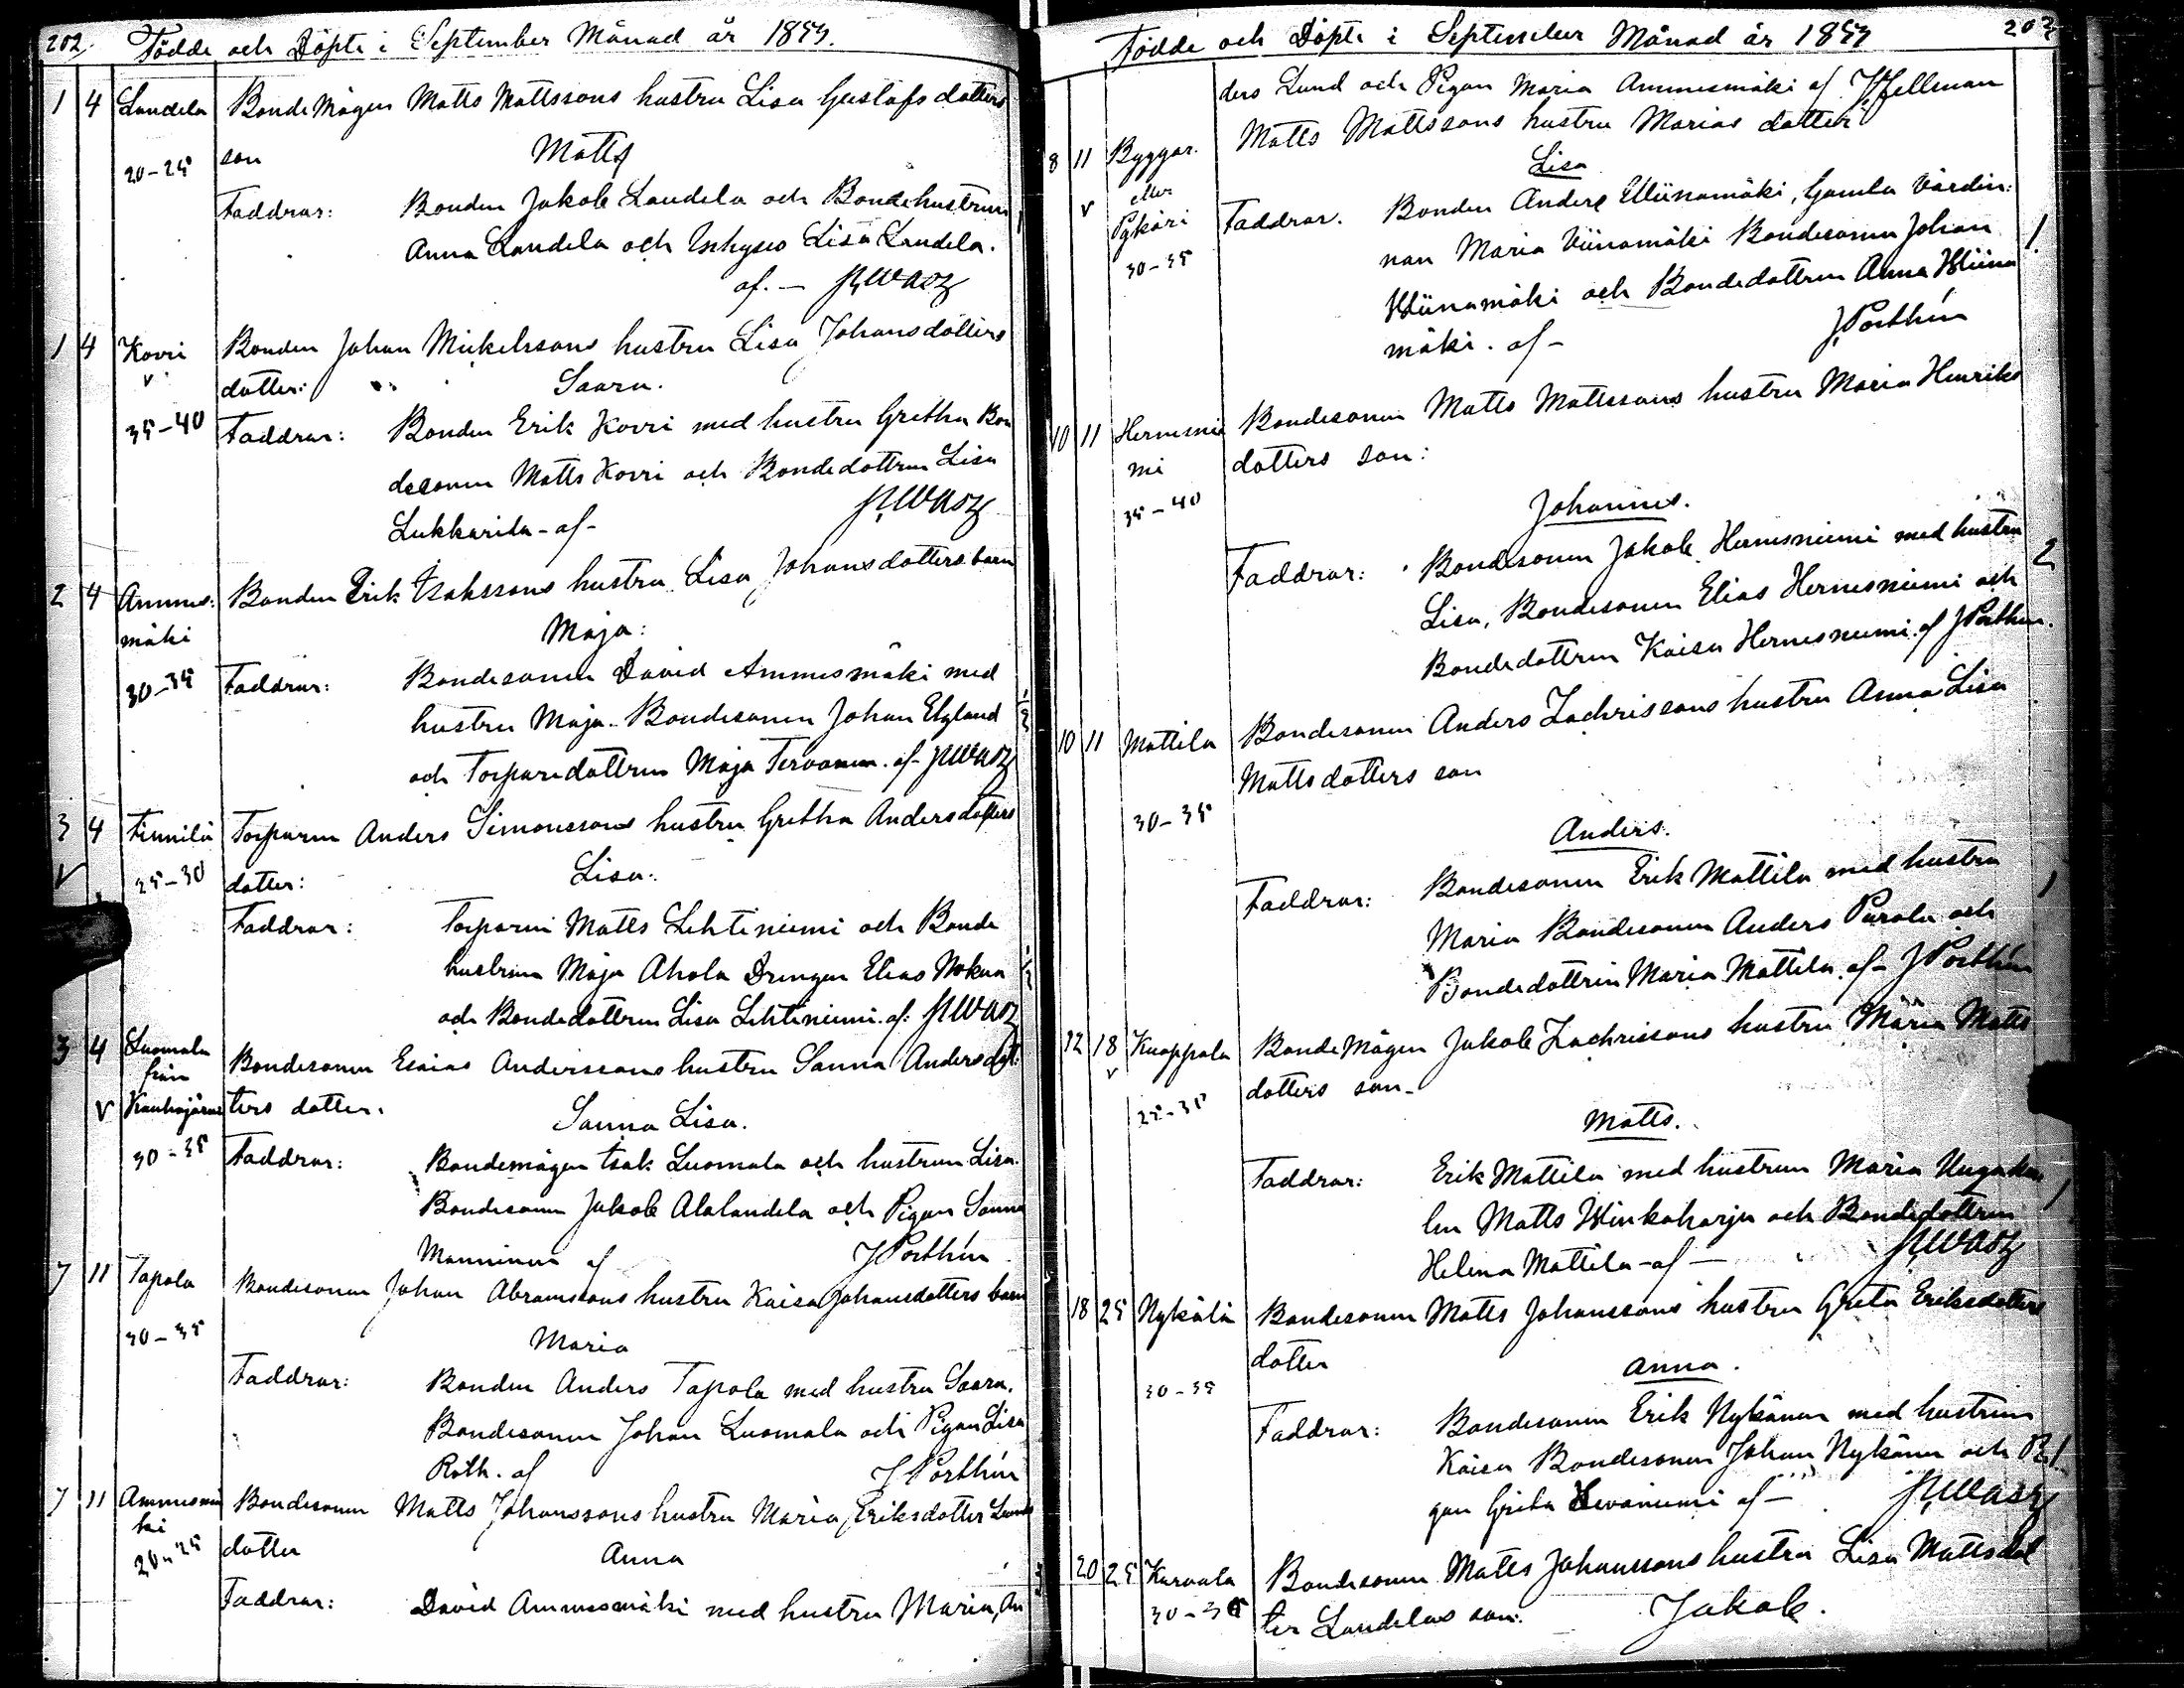 202. Födde och Döpte i September Månad år 1859.
1 4 Landela Bonde Mågen Matts Mattssons hustru Lisa Gustafs dotters
20-25 son Matts
Faddrar: Bonden Jakob Landela och Bondehustrun
Anna Landela och Inhyses Lisa Landela.
af. -
1 4 Korri Bonden Johan Mickelssons hustru Lisa Johansdotters
v dotter: Saara.
35-40 Faddrar: Bonden Erik Korri med hustru Gretha Bon
desonen Matts Korri och Bondedottren Lisa
Lukkarila - af -
2 4 Ammes: Bonden Erik Isakssons hustru Lisa Johansdotters barn
mäki Maja:
30-35 Faddrar: Bondesonen David Ammesmäki med
hustru Maja. Bondesonen Johan Elgland
och Torparedottren Maja Tervonen. af -
3 4 Finnilä Torparen Anders Simonssons hustru Gretha Andersdotters
v 25-30 dotter: Lisa.
Faddrar: Torparen Matts Lehtiniemi och Bonde
hustrun Maja Ahola Drengen Elias Nokua
och Bondedottren Lisa Lehtiniemi. af:
3 4 Luomala Bondesonen Esaias Anderssons hustru Sanna Andersdot
från
v Kauhajärvi ters dotter. Sanna Lisa.
30-35 Faddrar: Bondemågen Isak Luomala och hustrun Lisa.
Bondesonen Jakob Alalandela och Pigan Sanna
Manninen af J Porthín
7 11 Tapola Bondesonen Johan Abramssons hustru Kaisa Johansdotters barn
30-35 Maria
Faddrar: Bonden Anders Tapola med hustru Saara.
Bondesonen Johan Luomala och Pigan Lisa
Roth. af J Porthín
7 11 Ammesmä Bondesonen Matts Johanssons hustru Maria Eriksdotter Lunds
ki
20-25 dotter Anna
Faddrar: David Ammesmäki med hustru Maria, An
Födde och Döpte i September Månad år 1859 203
ders Lund och Pigan Maria Ammesmäki af J Hellman
8 11 Byggar. Matts Mattssons hustru Marias dotter
eller Lisa
v Pykäri Faddrar. Bonden Anders Wiinamäki, Gamla Värdin:
30-35 nan Maria Viinamäki Bondesonen Johan 1
Wiinamäki och Bondedottren Anna Wiina
mäki. af - J Porthín
10 11 Hernesnie Bondesonen Matts Mattssons hustru Maria Henriks
mi dotters son:
35-40 Johannes.
Faddrar: Bondesonen Jakob Hernesniemi med hustru 2
Lisa, Bondesonen Elias Hernesniemi och
Bondedottren Kaisa Hernesniemi. af J Porthín.
10 11 Mattila Bondesonen Anders Zachrissons hustru Anna Lisa
Mattsdotters son
30-35 Anders.
Faddrar: Bondesonen Erik Mattila med hustru 1
Maria Bondesonen Anders Purola och
Bondedottren Maria Mattila. af - J Porthín
12 18 Knuppala Bonde Mågen Jakob Zachrissons hustru Maria Matts
v dotters son -
25-35 Matts.
Faddrar: Erik Mattila med hustrun Maria Ungkar
len Matts Winkaharju och Bondedottren 1
Helena Mattila - af -
18 25 Nykälä Bondesonen Matts Johanssons hustru Greta Eriksdotters
dotter Anna.
30-35
Faddrar: Bondesonen Erik Nykänen med hustrun
Kaisa Bondesonen Johan Nykänen och Pi 1
gan Greta af -
20 25 Karvala Bondesonen Matts Johanssons hustru Lisa Mattsdot
30-35 ter Landelas son: Jakob.